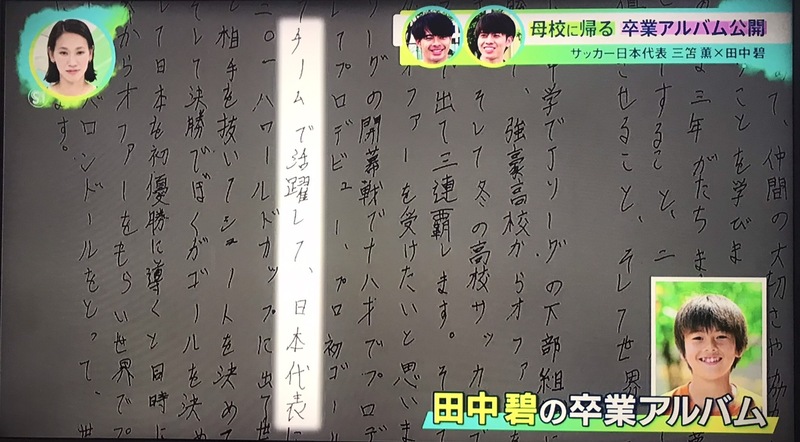 母校に帰る 卒業アルバム公開
サッカー日本代表 三笘 薫×田中碧
て、仲間の大切さや協
ことを学びま
ま三年がたちま
すること、
させること、そして世界
中学でJリーグの下部組
て、強豪高校からオファ
そして冬の高校サッカ
で出て三連覇します。そ
オファーを受けたいと思いま
リーグの開幕戦で十八才でプロデ
してプロデビュー、プロ初ゴール
チームで活躍して、日本代表に
一八ワールドカップに出て世
し相手を抜いてシュートを決めて
そして決勝でぼくがゴールを決め
して日本を初優勝に導くと同時に
からオファーをもらい世界でプ
バロンドールをとって、世
ます。
田中碧の卒業アルバム